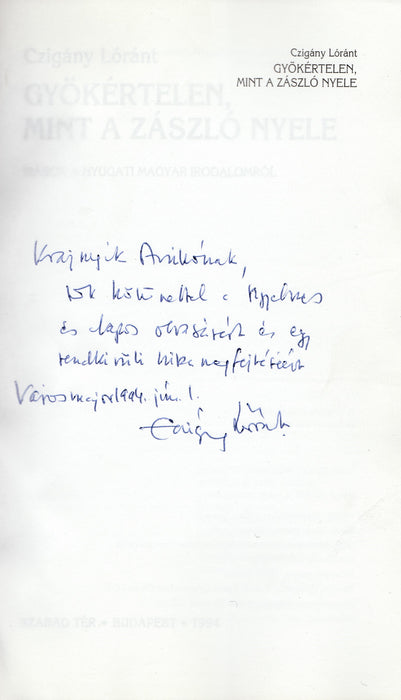 Czigány Lóránt
GYÖKÉRTELEN,
MINT A ZÁSZLÓ NYELE
Czigány Lóránt
GYÖKÉRTELEN,
MINT A ZÁSZLÓ NYELE
NYUGATI MAGYAR IRODALOMRÓL
Krajnyik Anikónak,
sok köszönettel a figyelmes
és alapos olvasásért és egy
rendkívüli hiba megfejtéséért
Városmajor 1994. jún. 1.
Czigány Lóránt
SZABAD TÉR • BUDAPEST • 1994